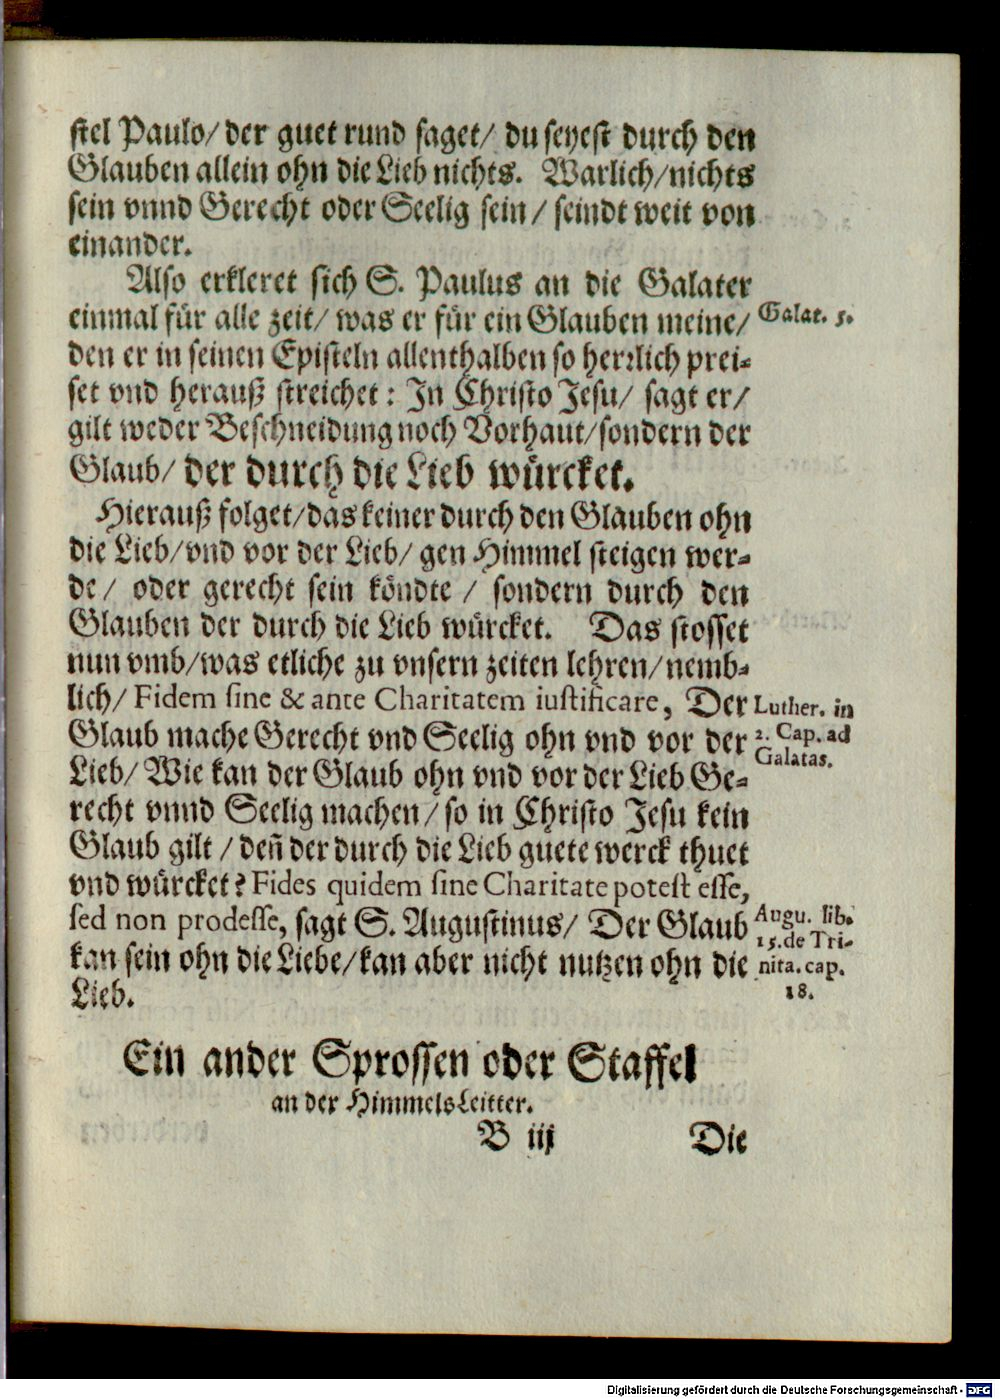 stel Paulo/ der guet rund saget/ du seyest durch den
Glauben allein ohn die Lieb nichts. Warlich/nichts
sein vnnd Gerecht oder Seelig sein/ seindt weit von
einander.
Also erkleret sich S. Paulus an die Galater
einmal für alle zeit/ was er für ein Glauben meine/
Galat. 5.
den er in seinen Episteln allenthalben so herrlich prei-
set vnd herauß streichet: In Christo Jesu/ sagt er/
gilt weder Beschneidung noch Vorhaut/sondern der
Glaub/ der durch die Lieb würcket.
Hierauß folget/das keiner durch den Glauben ohn
die Lieb/vnd vor der Lieb/ gen Himmel steigen wer-
de/ oder gerecht sein köndte/ sondern durch den
Glauben der durch die Lieb würcket. Das stosset
nun vmb/was etliche zu vnsern zeiten lehren/nemb-
lich/ Fidem sine & ante Charitatem iustificare, Der
Luther. in
Glaub mache Gerecht vnd Seelig ohn vnd vor der
2. Cap. ad
Galatas.
Lieb/ Wie kan der Glaub ohn vnd vor der Lieb Ge-
recht vnnd Seelig machen/ so in Christo Jesu kein
Glaub gilt/ deñ der durch die Lieb guete werck thuet
vnd würcket? Fides quidem sine Charitate potest esse,
sed non prodesse, sagt S. Augustinus/ Der Glaub
Augu. lib.
15. de Tri-
kan sein ohn die Liebe/kan aber nicht nutzen ohn die
nita. cap.
18.
Lieb.
Ein ander Sprossen oder Staffel
an der HimmelsLeitter.
B iij
Die
Digitalisierung gefördert durch die Deutsche Forschungsgemeinschaft - DFG